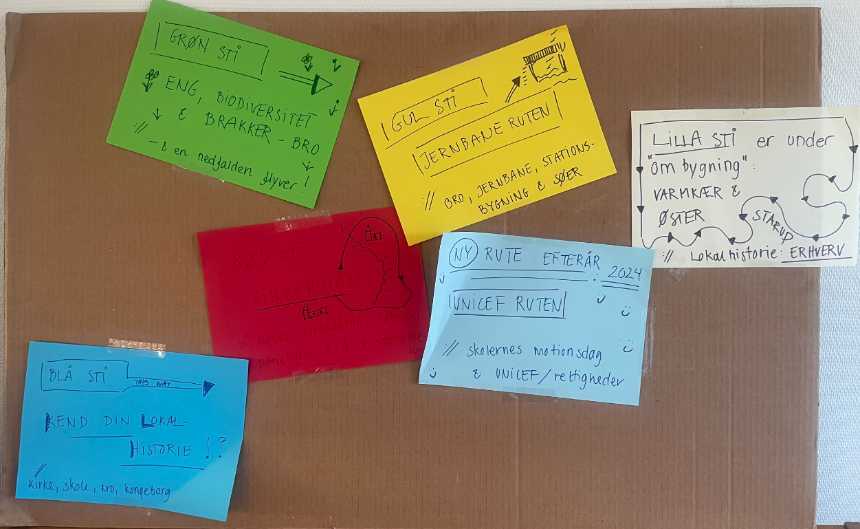 GRØN STI
ENG, BIODIVERSITET
& BRAKKER-BRO
- & en nedfalden flyver!
GUL STI
JERNBANE RUTEN
// BRO, JERNBANE, STATIONS-
BYGNING & SØER
LILLA STI er under
"om bygning":
VARMKÆR &
ØSTER
STARUP
// Lokalhistorie: ERHVERV
RØD STI
KIRKERUTEN
// under
NY RUTE EFTERÅR
: 2024
UNICEF RUTEN
// skolernes motionsdag
& UNICEF/rettigheder
BLÅ STI THIS WAY
KEND DIN LOKAL-
HISTORIE !?
//
Kirke, skole, kro, kongeborg